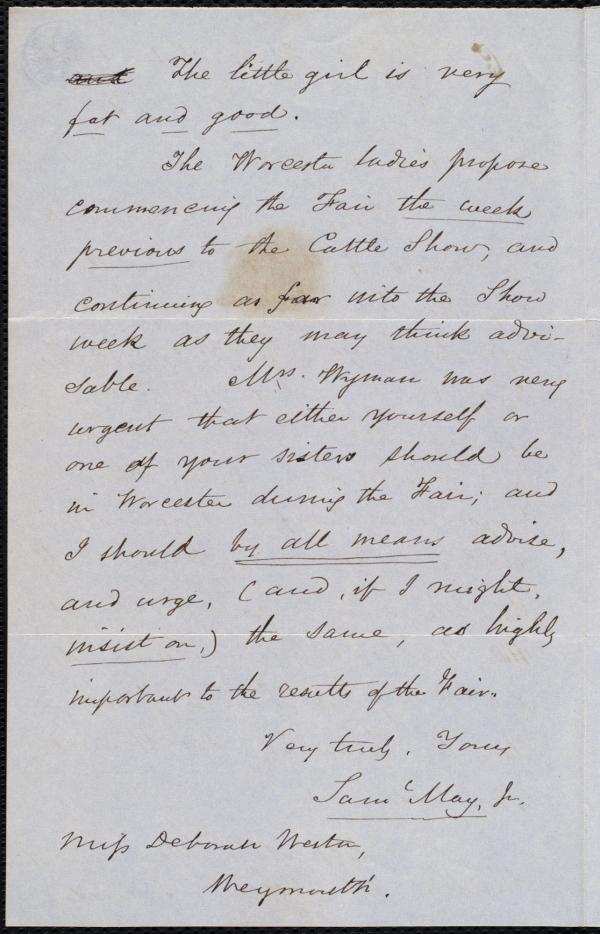 and The little girl is very
fat and good.
The Worcester ladies propose
commencing the Fair the week
previous to the Cattle Show, and
continuing as far into the Show
week as they may think advi-
sable. Mrs. Wyman was very
urgent that either yourself or
one of your sisters should be
in Worcester during the Fair; and
I should by all means advise,
and urge, (and, if I might,
insist on,) the same, as highly
important to the results of the Fair.
Very truly, Yours
Saml May, Jr.
Miss Deborah Weston,
Weymouth.